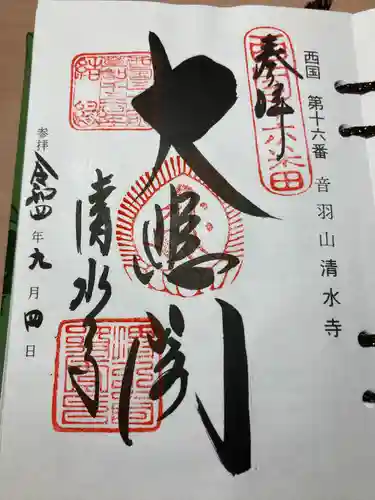 西国 第十六番 音羽山清水寺
奉拝
大悲閣
清水寺
参拝 令和四年九月四日